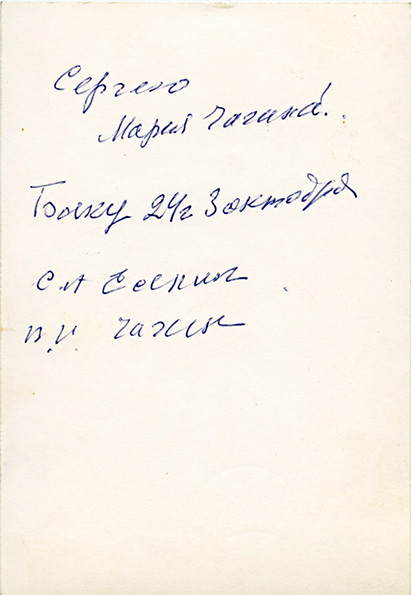 Сергею
Мария Чагина.
Баку 24г 3 октября
С А Есенин
П. И. Чагин